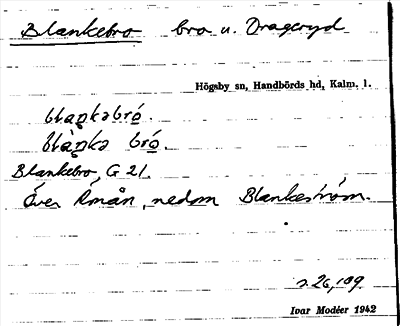 Blankebro bro u. Drageryd
Högsby sn, Handbörds hd, Kalm. l.
blaŋkəbró.
blàŋka bró.
Blankebro, G 21.
Över Åmån, nedom Blankeström.
s. 26, 109
Ivar Modéer 1942